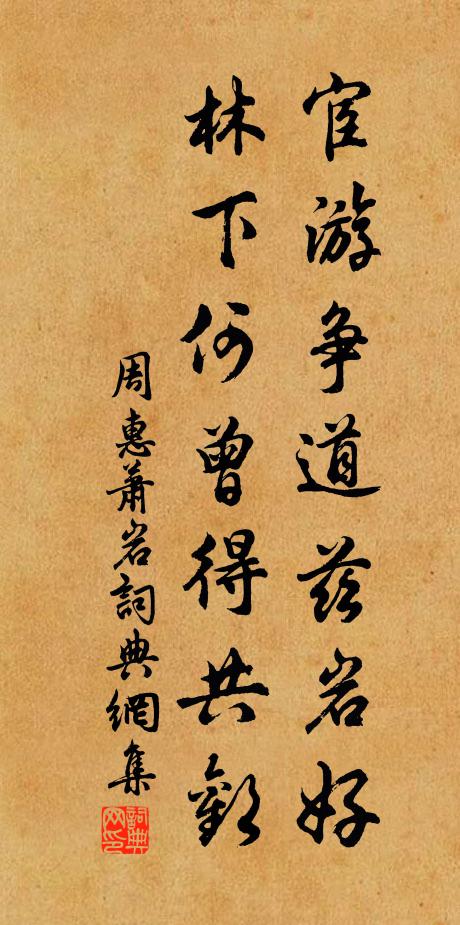 宦游争道兹岩好
林下何曾得共歡
周惠蕭岩詞典網集
詞典
网印